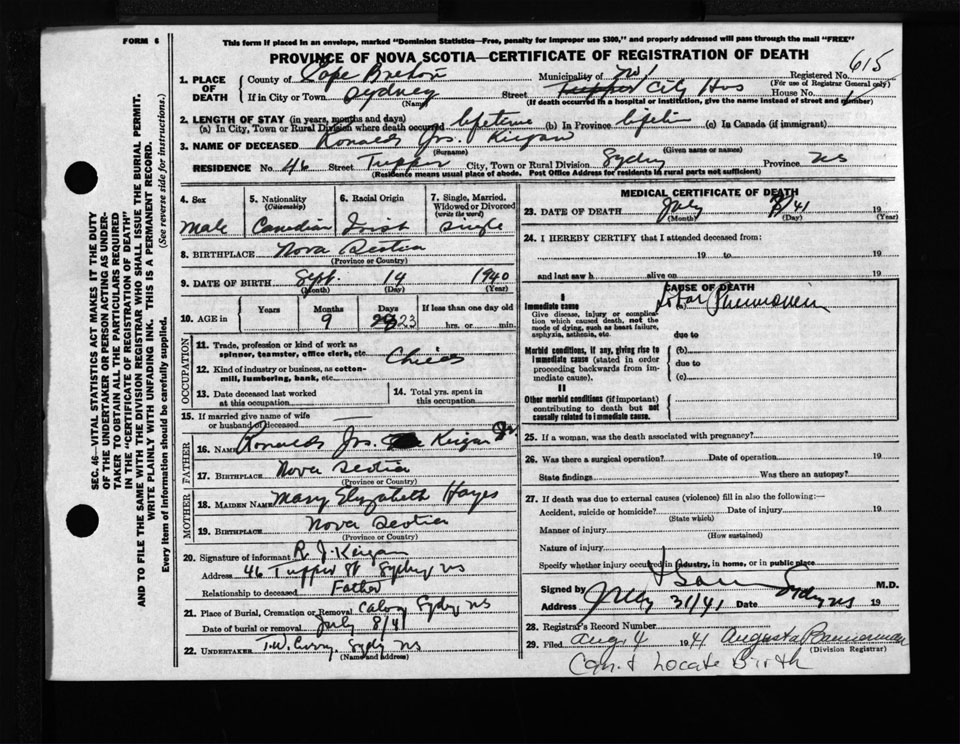 FORM 6
This form if placed in an envelope, marked "Dominion Statistics—Free, penalty for improper use $300," and properly addressed will pass through the mail "FREE"
PROVINCE OF NOVA SCOTIA—CERTIFICATE OF REGISTRATION OF DEATH
1. PLACE OF DEATH
County of Cape Breton Municipality of Registered No. 615
(For use of Registrar General only)
If in City or Town Sydney Street Tupper City Hos House No.
(Name) (If death occurred in a hospital or institution, give the name instead of street and number)
2. LENGTH OF STAY (in years, months and days)
(a) In City, Town or Rural Division where death occurred lifetime (b) In Province lifetim (c) In Canada (if immigrant)
3. NAME OF DECEASED Ronald Jos. Keigan
(Surname) (Given name or names)
RESIDENCE No. 46 Street Tupper City, Town or Rural Division Sydney Province NS
(Residence means usual place of abode. Post Office Address for residents in rural parts not sufficient)
4. Sex
Male
5. Nationality
(Citizenship)
Canadian
6. Racial Origin
Irish
7. Single, Married, Widowed or Divorced
(write the word)
Single
8. BIRTHPLACE Nova Scotia
(Province or Country)
9. DATE OF BIRTH Sept. 14 1940
(Month) (Day) (Year)
10. AGE in
Years Months Days If less than one day old
9 23 hrs. or min.
OCCUPATION
11. Trade, profession or kind of work as
spinner, teamster, office clerk, etc. Child
12. Kind of industry or business, as cotton-
mill, lumbering, bank, etc.
13. Date deceased last worked
at this occupation
14. Total yrs. spent in
this occupation
15. If married give name of wife
or husband of deceased
FATHER
16. NAME Ronald Jos. Keigan Sr.
17. BIRTHPLACE Nova Scotia
(Province or Country)
MOTHER
18. MAIDEN NAME Mary Elyzabeth Hayes
19. BIRTHPLACE Nova Scotia
(Province or Country)
20. Signature of informant R J. Keigan
Address 46 Tupper St Sydney NS
Relationship to deceased Father
21. Place of Burial, Cremation or Removal Calvary Sydney NS
Date of burial or removal July 8/41
22. UNDERTAKER T.W. Curry. Sydney NS
(Name and address)
MEDICAL CERTIFICATE OF DEATH
23. DATE OF DEATH July 7/41 19
(Month) (Day) (Year)
24. I HEREBY CERTIFY that I attended deceased from:
19 to 19
and last saw h alive on 19
CAUSE OF DEATH
I
Immediate cause
Give disease, injury or complication which caused death, not the mode of dying, such as heart failure, asphyxia, asthenia, etc.
(a) Lobar Pneumonia
due to
Morbid conditions, if any, giving rise to immediate cause (stated in order proceeding backwards from immediate cause).
(b)
due to
(c)
II
Other morbid conditions (if important) contributing to death but not causally related to immediate cause.
25. If a woman, was the death associated with pregnancy?
26. Was there a surgical operation? Date of operation 19
State findings Was there an autopsy?
27. If death was due to external causes (violence) fill in also the following:—
Accident, suicide or homicide? Date of injury 19
(State which)
Manner of injury
(How sustained)
Nature of injury
Specify whether injury occurred in industry, in home, or in public place
Signed by M.D.
Address July 31/41 Date Sydney NS 19
28. Registrar's Record Number
29. Filed Aug 4 1941 Augusta Bannerman
(Division Registrar)
Can.t Locate Birth
SEC. 46—VITAL STATISTICS ACT MAKES IT THE DUTY
OF THE UNDERTAKER OR PERSON ACTING AS UNDER-
TAKER TO OBTAIN ALL THE PARTICULARS REQUIRED
IN THE "CERTIFICATE OF REGISTRATION OF DEATH"
AND TO FILE THE SAME WITH THE DIVISION REGISTRAR WHO SHALL ISSUE THE BURIAL PERMIT.
WRITE PLAINLY WITH UNFADING INK. THIS IS A PERMANENT RECORD.
Every item of information should be carefully supplied. (See reverse side for instructions.)